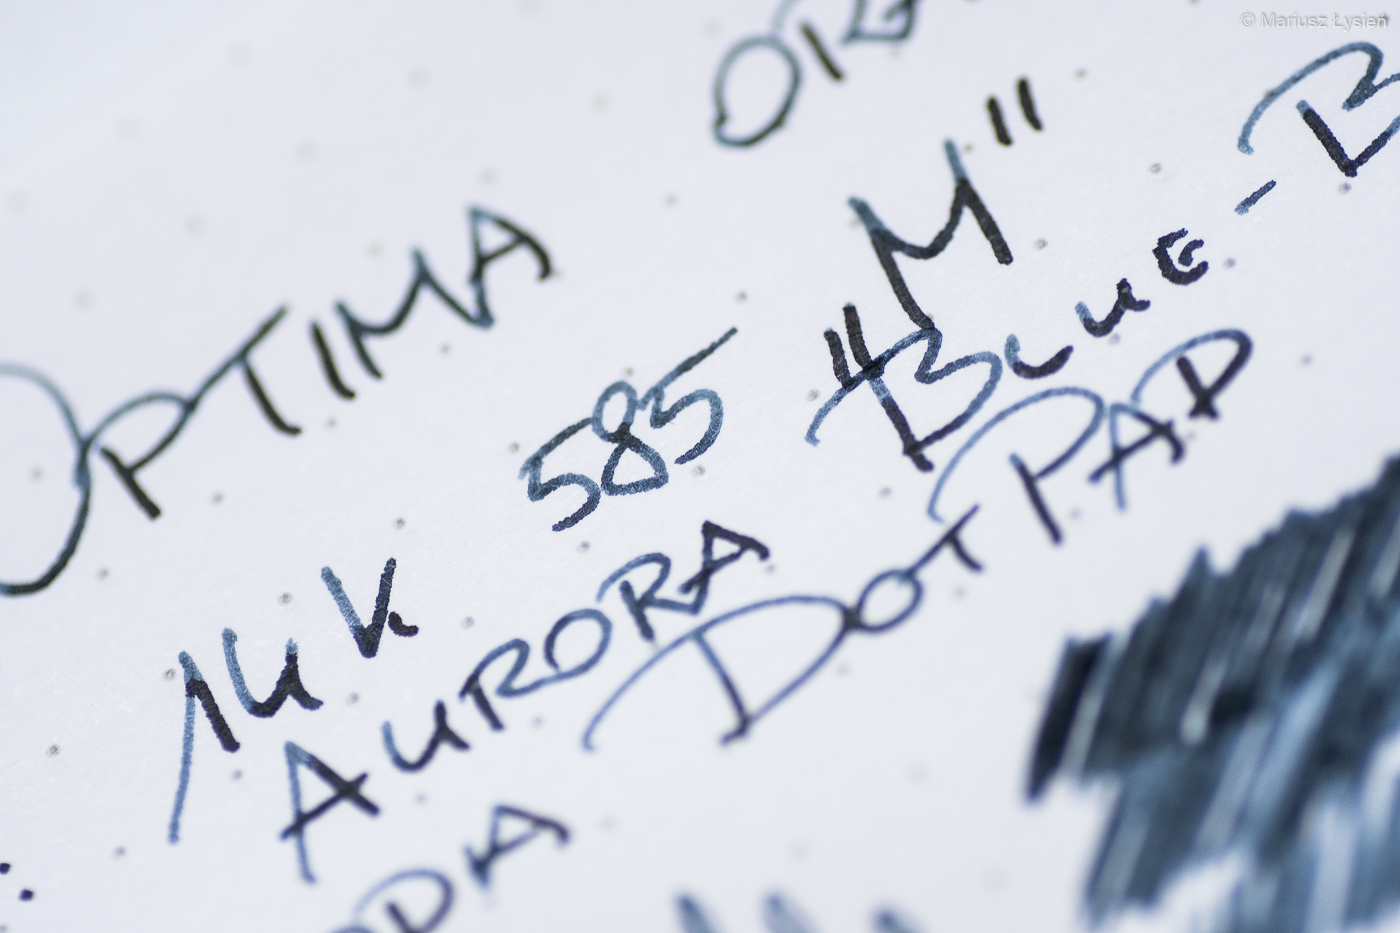 © Mariusz Łysień
OPTIMA
14 K 585 "M"
AURORA BLUE-B
DOTPAD